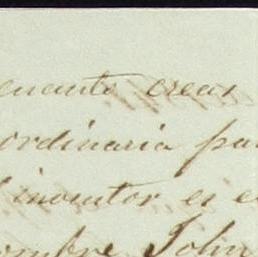 enante creas
ordinaria pa
inventor es e
ombre John